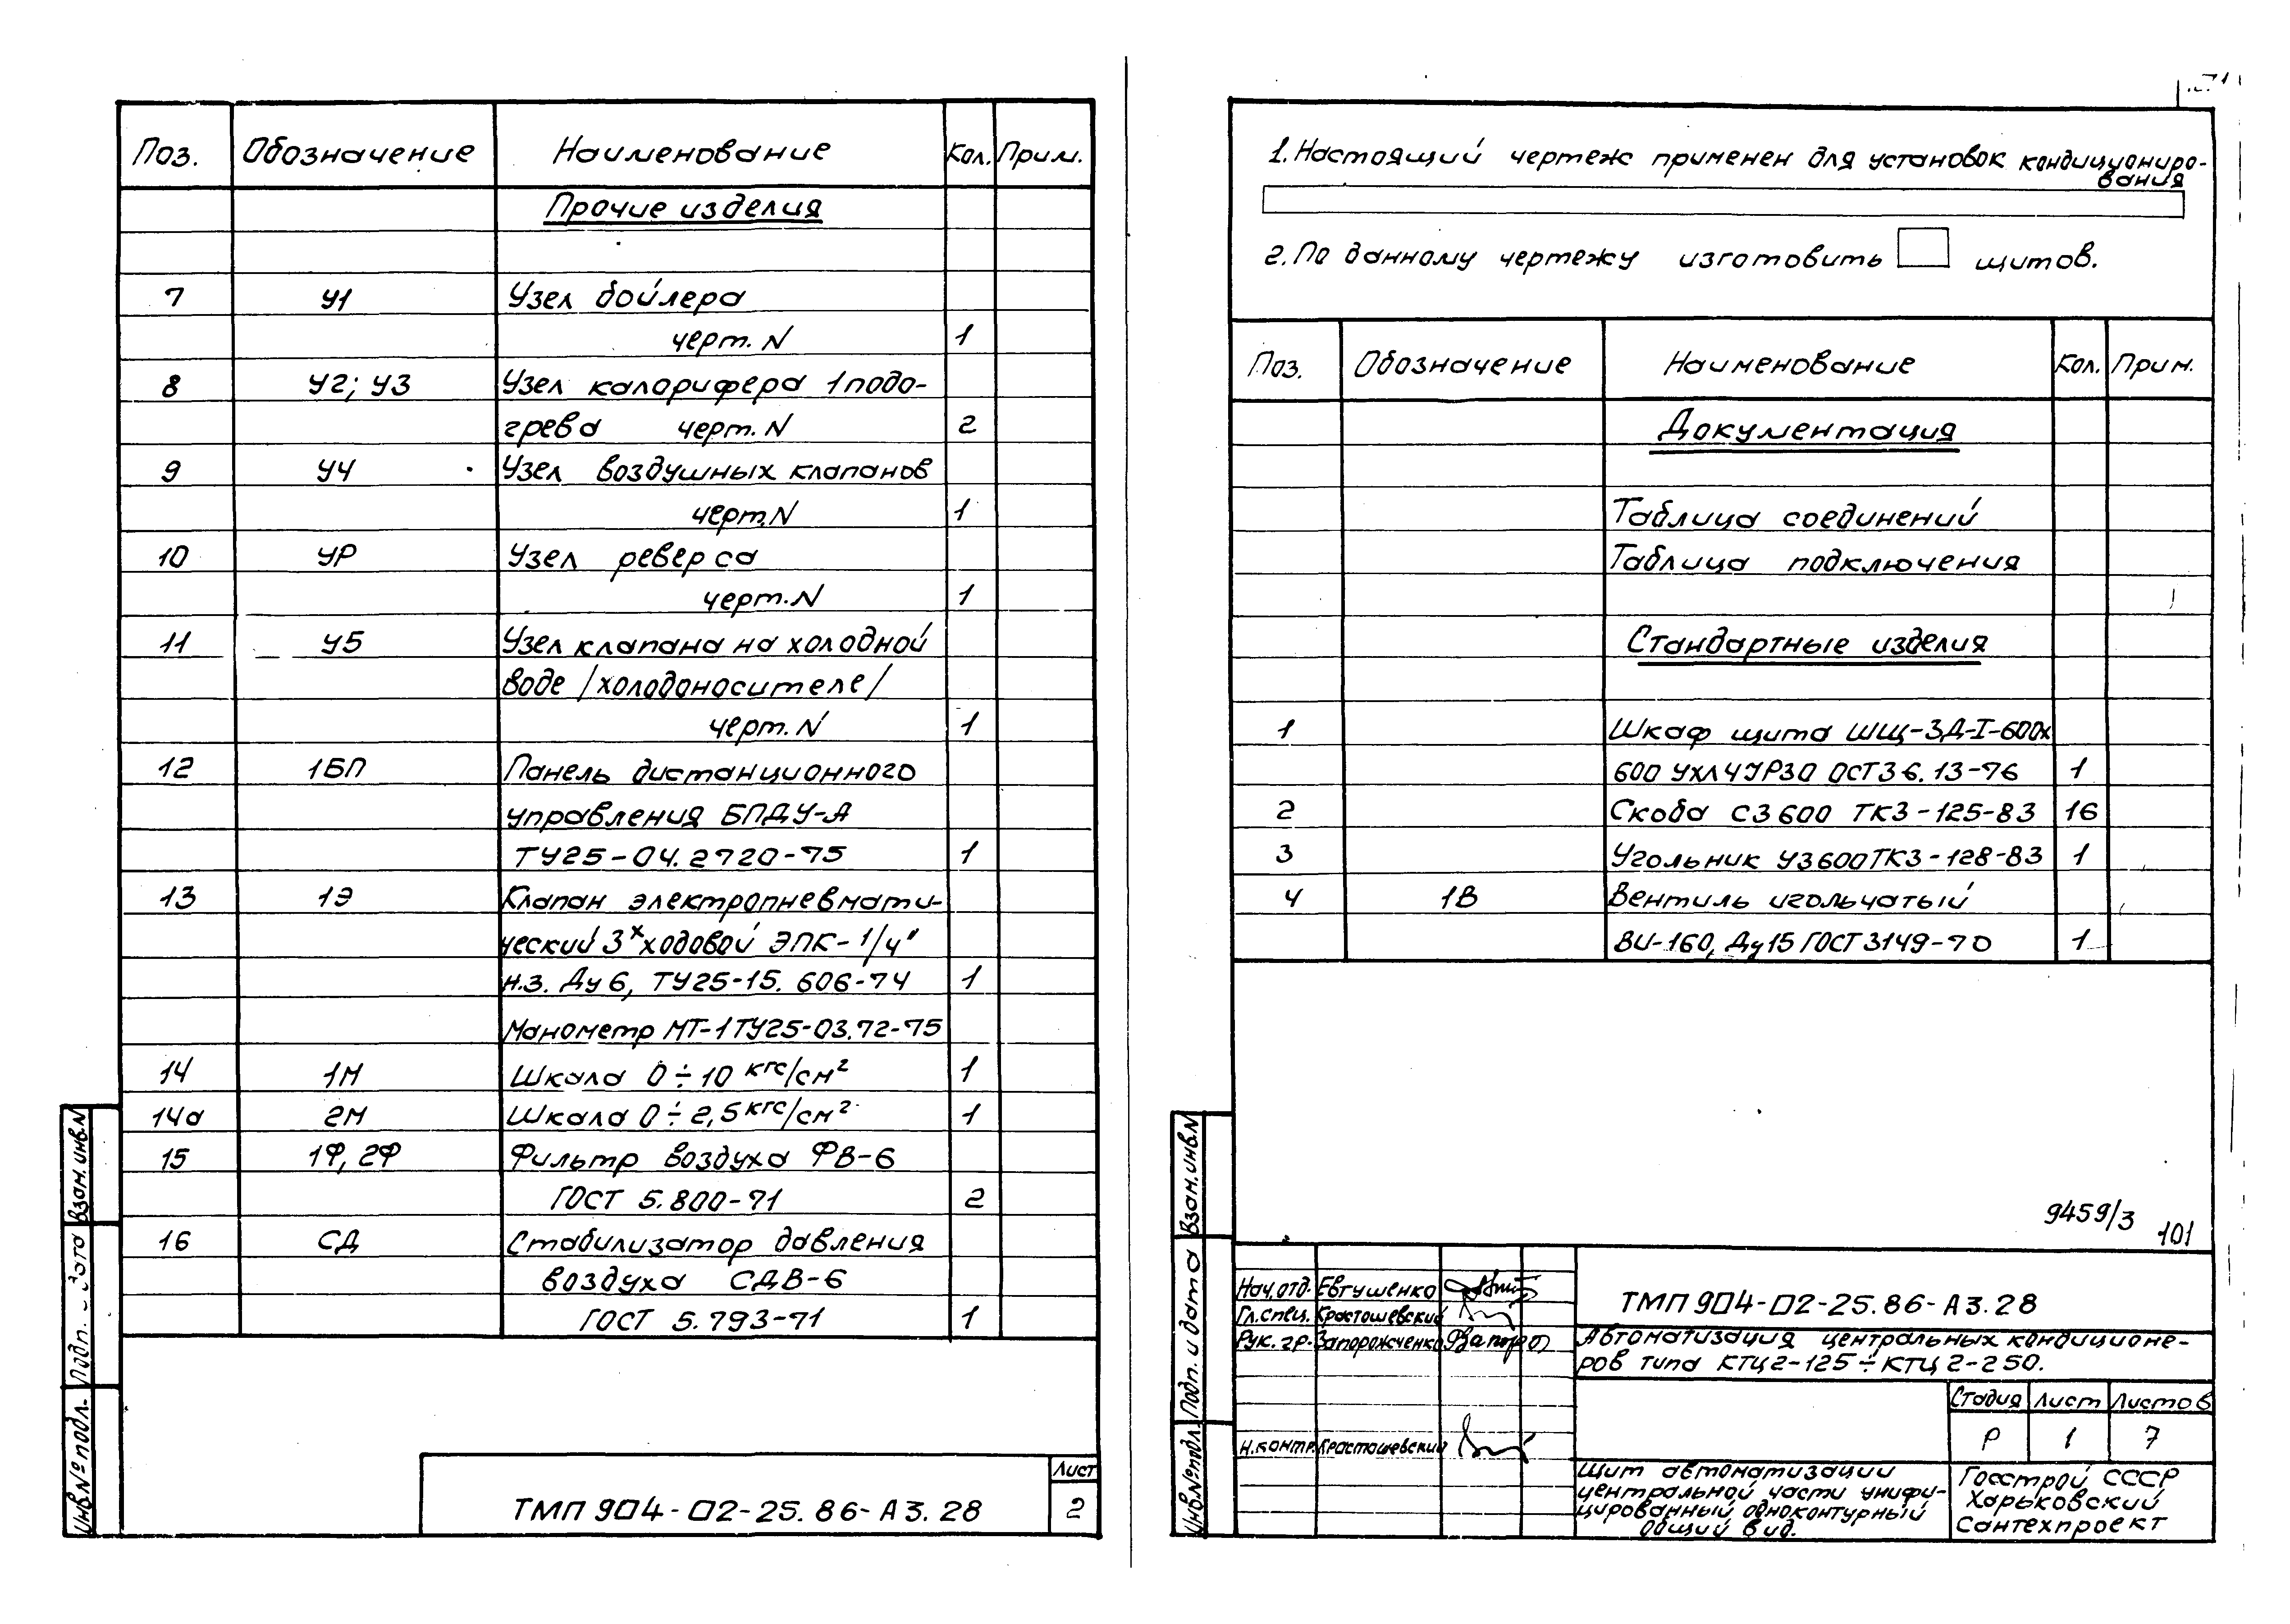 Поз. Обозначение Наименование Кол. Прим.
Прочие изделия
7 У1 Узел бойлера
черт. N 1
8 У2; У3 Узел калорифера 1 подо-
грева черт. N 2
9 У4 Узел воздушных клапанов
черт. N 1
10 УР Узел реверса
черт. N 1
11 У5 Узел клапана на холодной
воде /холодоносителе/
черт. N 1
12 1БП Панель дистанционного
управления БПДУ-А
ТУ25-04.2720-75 1
13 1Э Клапан электропневмати-
ческий 3х ходовой ЭПК-1/4"
н.з. Ду 6, ТУ25-15. 606-74 1
Манометр МТ-1 ТУ25-03.72-75
14 1М Шкала 0÷10 кгс/см² 1
14а 2М Шкала 0÷2,5 кгс/см² 1
15 1Ф, 2Ф Фильтр воздуха ФВ-6
ГОСТ 5.800-71 2
16 СД Стабилизатор давления
воздуха СДВ-6
ГОСТ 5.793-71 1
Взам. инв. N
Подп. дата
Инв. № подл.
ТМП 904-02-25.86-А3.28
Лист
2
1. Настоящий чертеж применен для установок кондициониро-
вания
2. По данному чертежу изготовить щитов.
Поз. Обозначение Наименование Кол. Прим.
Документация
Таблица соединений
Таблица подключения
Стандартные изделия
1 Шкаф щита ШЩ-ЗД-I-600х
600 УХЛ4 УР30 ОСТ36.13-76 1
2 Скоба С3 600 ТК3-125-83 16
3 Угольник У3 600 ТК3-128-83 1
4 1В Вентиль игольчатый
ВИ-160, Ду 15 ГОСТ 3149-70 1
9459/3
101
Взам. инв. N
Подп. и дата
Инв. № подл.
Нач. отд. Евтушенко
Гл. спец. Красташевский
Рук. гр. Запорожченко
Н. контр. Красташевский
ТМП 904-02-25.86-А3.28
Автоматизация центральных кондиционе-
ров типа КТЦ2-125÷КТЦ2-250.
Стадия Лист Листов
Р 1 7
Щит автоматизации
центральной части унифи-
цированный одноконтурный
Общий вид.
Госстрой СССР
Харьковский
Сантехпроект